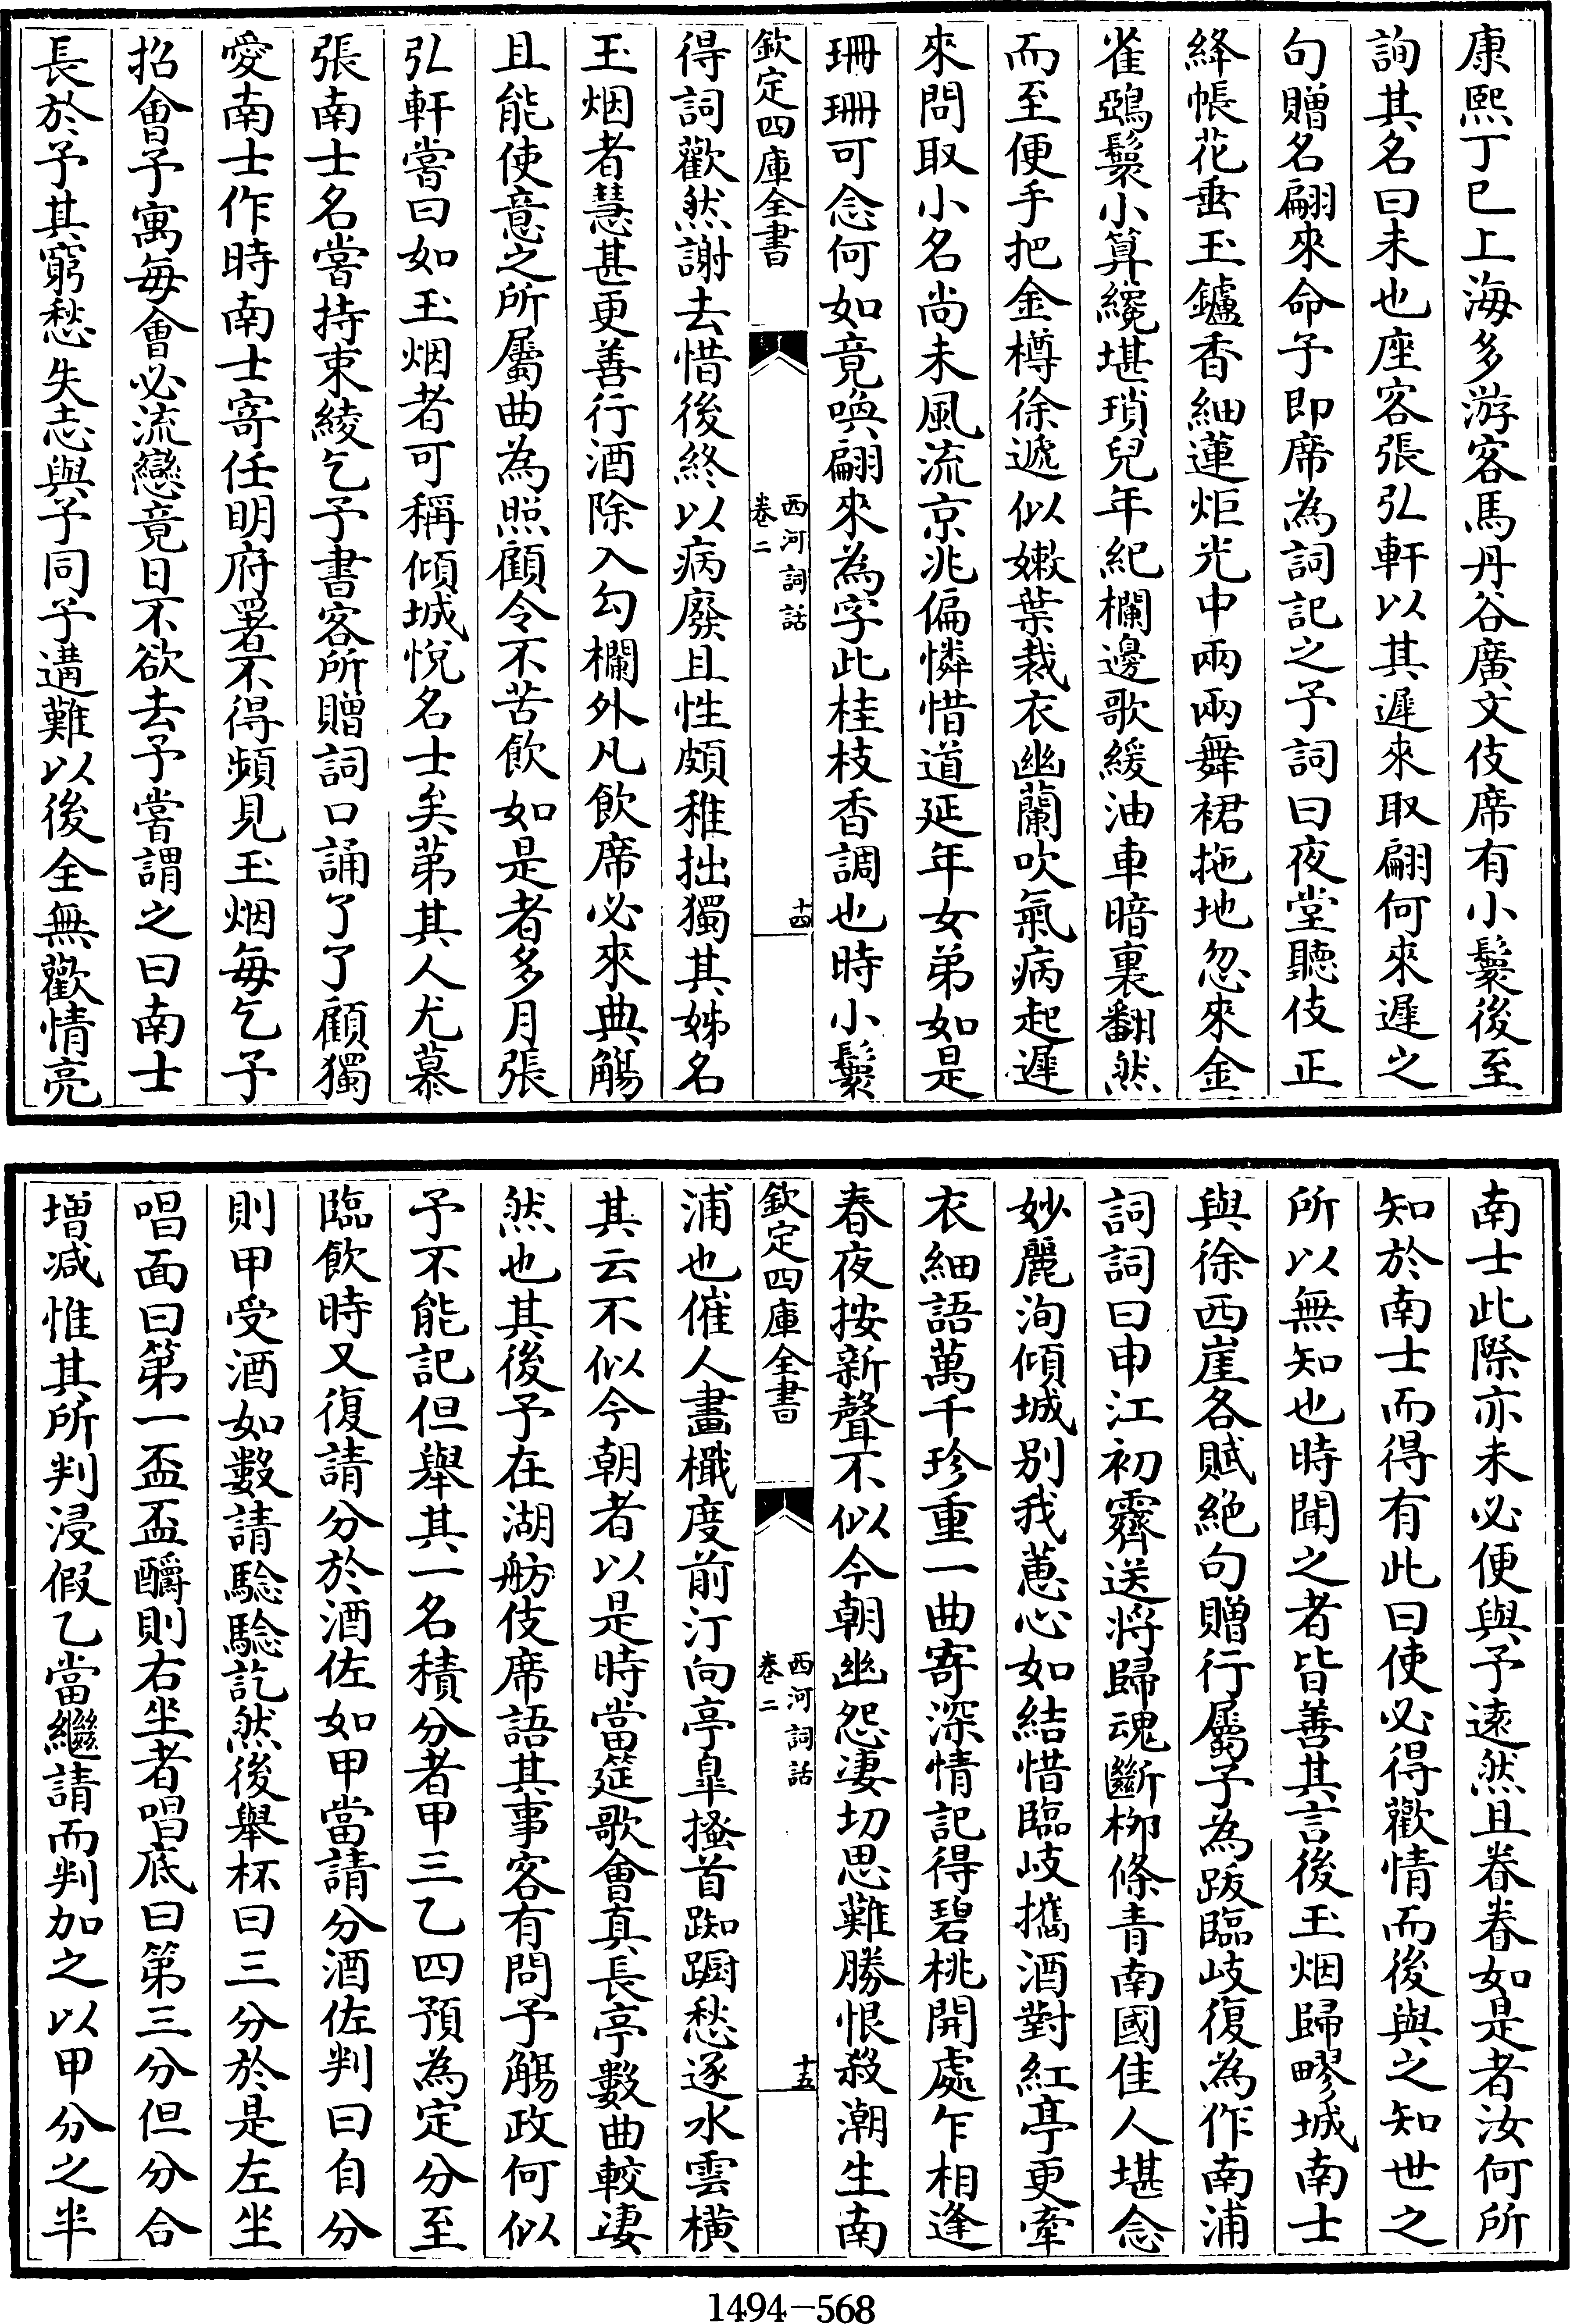 康熙丁巳上海多游客馬丹谷廣文伎席有小鬟後至
詢其名曰未也座客張弘軒以其遲來取翩何來遲之
句贈名翩來命予即席為詞記之予詞曰夜堂聽伎正
絳帳花垂玉鑪香細蓮炬光中兩兩舞裙拖地忽來金
雀鵶鬟小算纔堪瑣兒年紀欄邊歌緩油車暗裏翻然
而至便手把金樽徐遞似嫩葉裁衣幽蘭吹氣病起遲
來問取小名尚未風流京兆偏憐惜道延年女弟如是
珊珊可念何如竟喚翩來為字此桂枝香調也時小鬟
欽定四庫全書
西河詞話
卷二
十四
得詞歡然謝去惜後終以病廢且性頗稚拙獨其姊名
玉烟者慧甚更善行酒除入勾欄外凡飲席必來典觴
且能使意之所屬曲為照顧令不苦飲如是者多月張
弘軒嘗曰如玉烟者可稱傾城悅名士矣第其人尤慕
張南士名嘗持束綾乞予書客所贈詞口誦了了顧獨
愛南士作時南士寄任明府署不得頻見玉烟每乞予
招會予寓每會必流戀竟日不欲去予嘗謂之曰南士
長於予其窮愁失志與予同予遘難以後全無歡情亮
南士此際亦未必便與予遠然且眷眷如是者汝何所
知於南士而得有此曰使必得歡情而後與之知世之
所以無知也時聞之者皆善其言後玉烟歸疁城南士
與徐西崖各賦絶句贈行屬予為跋臨岐復為作南浦
詞詞曰申江初霽送將歸魂斷柳條青南國佳人堪念
妙麗洵傾城別我蕙心如結惜臨岐攜酒對紅亭更牽
衣細語萬千珍重一曲寄深情記得碧桃開處乍相逢
春夜按新聲不似今朝幽怨淒切思難勝恨殺潮生南
欽定四庫全書
西河詞話
卷二
十五
浦也催人畫檝度前汀向亭皐搔首踟蹰愁逐水雲橫
其云不似今朝者以是時當筵歌會真長亭數曲較淒
然也其後予在湖舫伎席語其事客有問予觴政何似
予不能記但舉其一名積分者甲三乙四預為定分至
臨飲時又復請分於酒佐如甲當請分酒佐判曰自分
則甲受酒如數請驗驗訖然後舉杯曰三分於是左坐
唱面曰第一盃盃釂則右坐者唱底曰第三分但分合
增減惟其所判浸假乙當繼請而判加之以甲分之半
1494-568